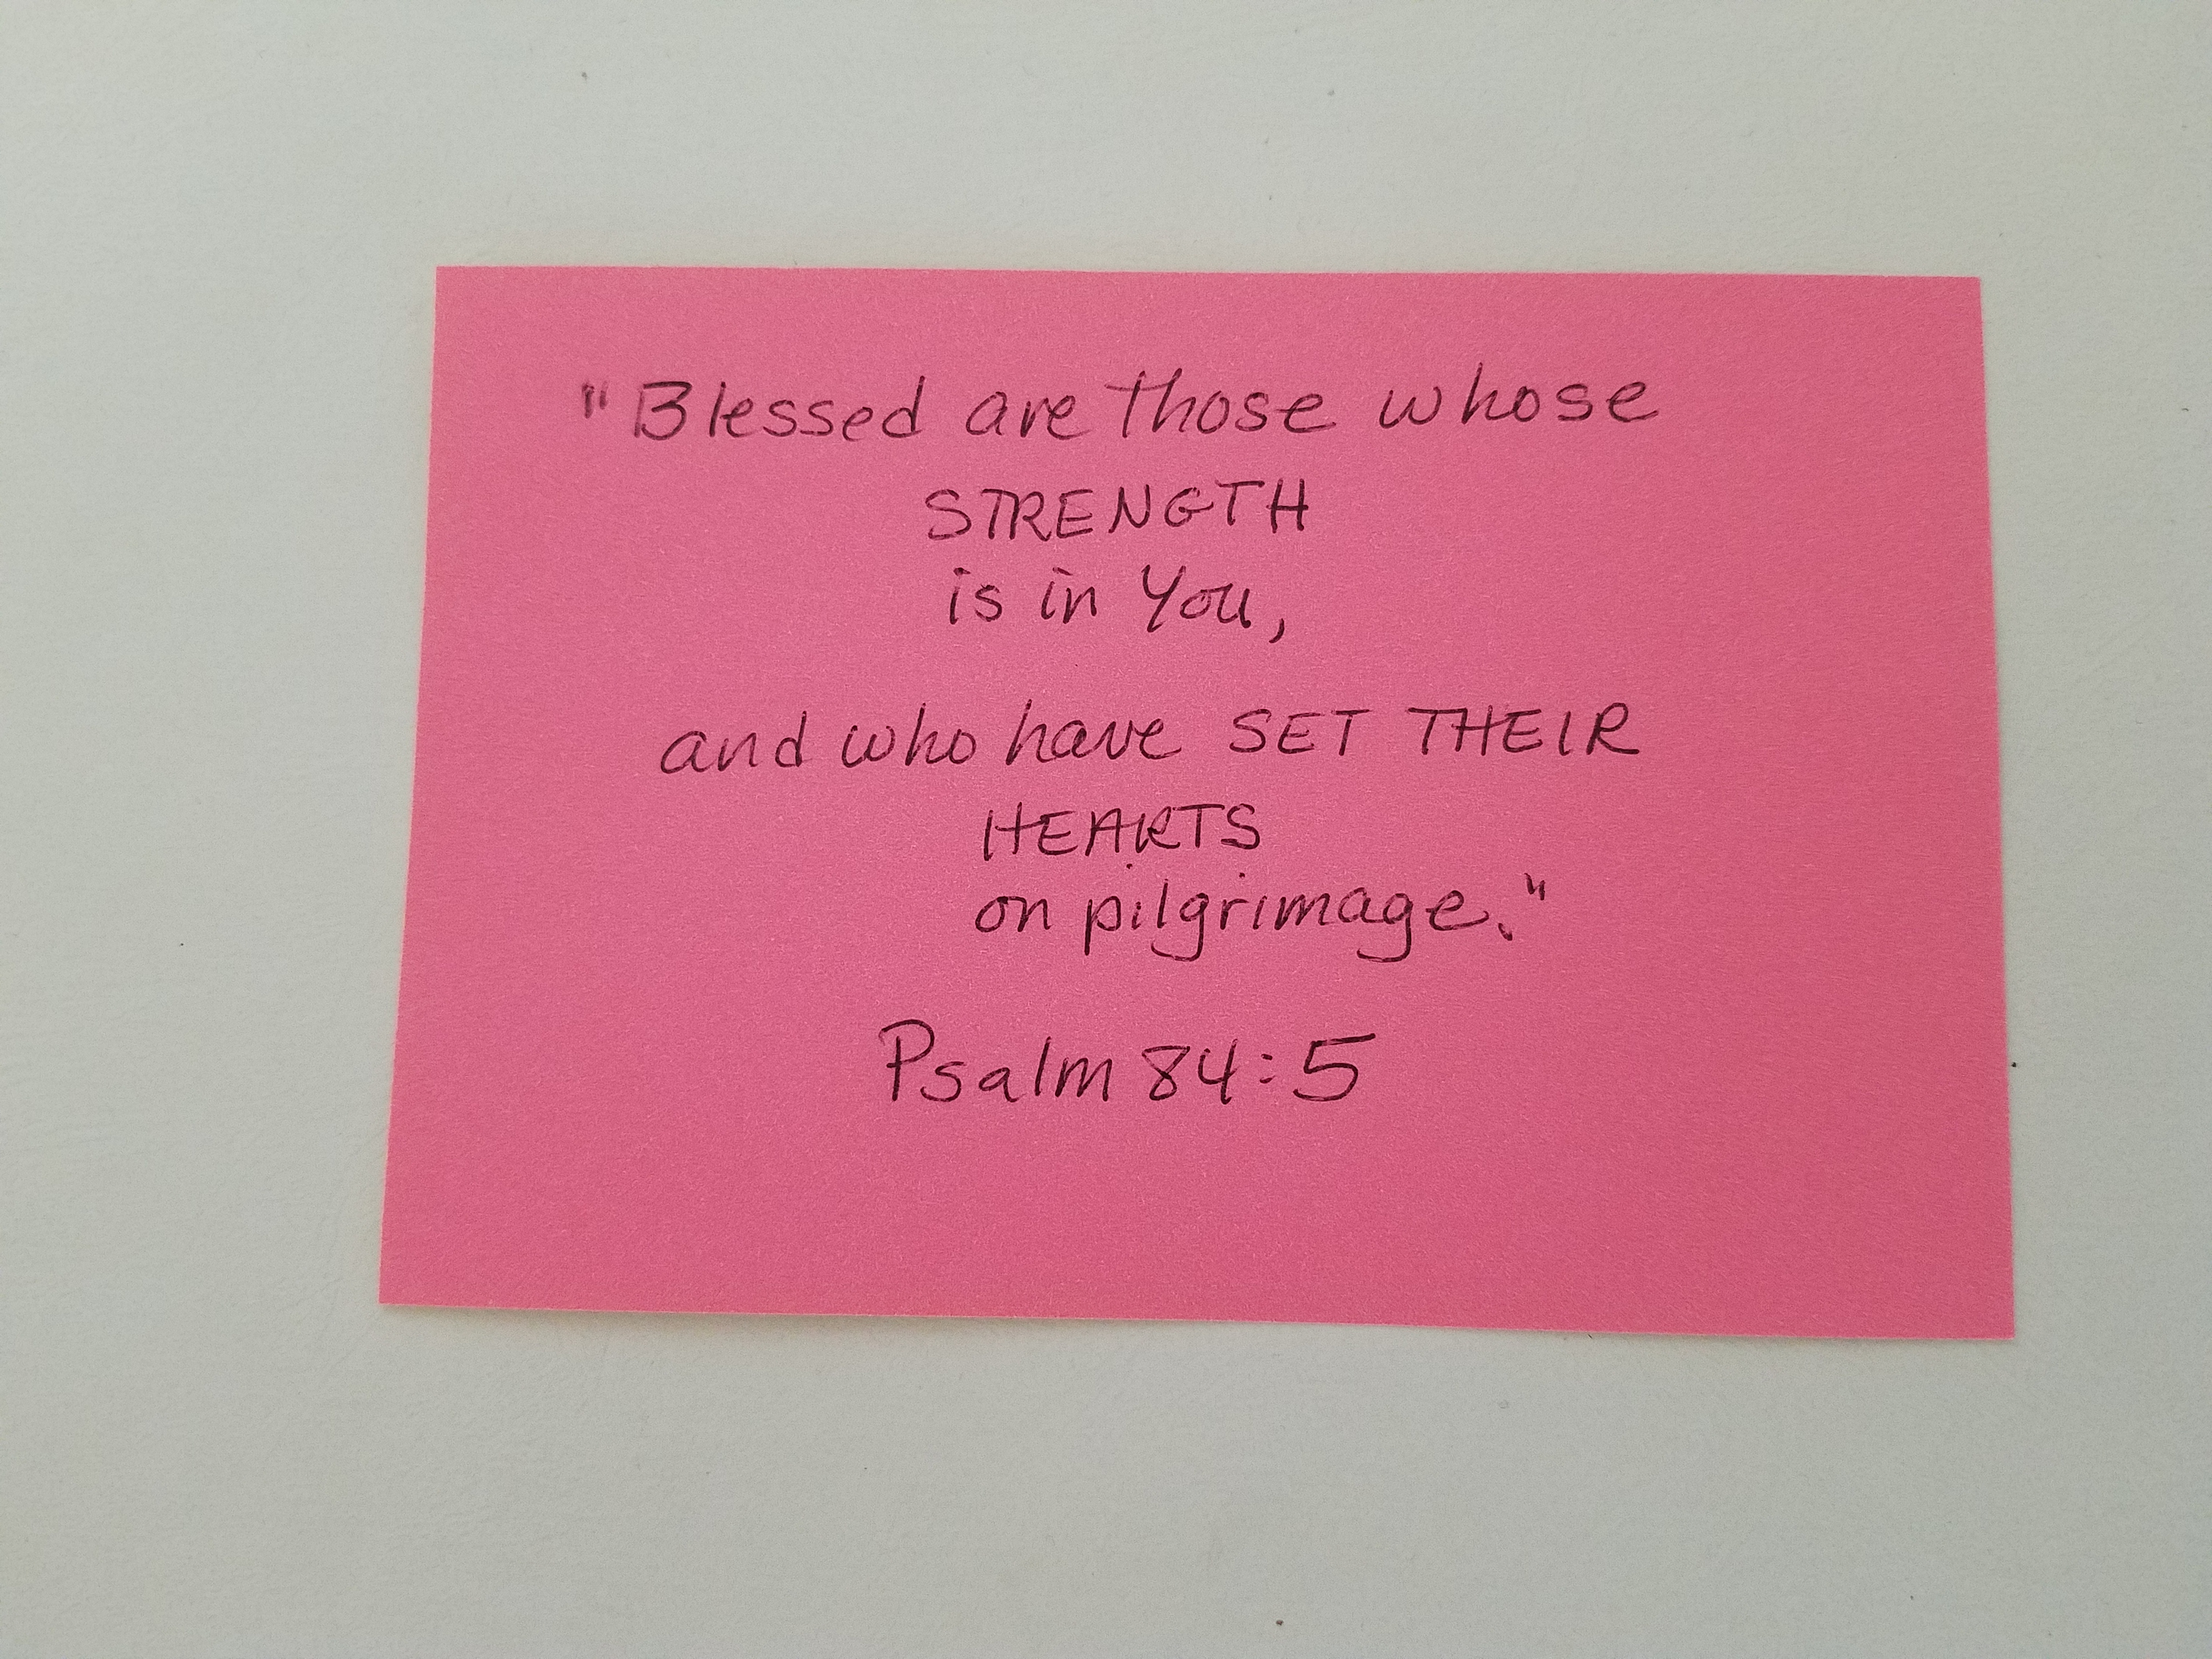 "Blessed are those whose
STRENGTH
is in You,
and who have SET THEIR
HEARTS
on pilgrimage."
Psalm 84:5